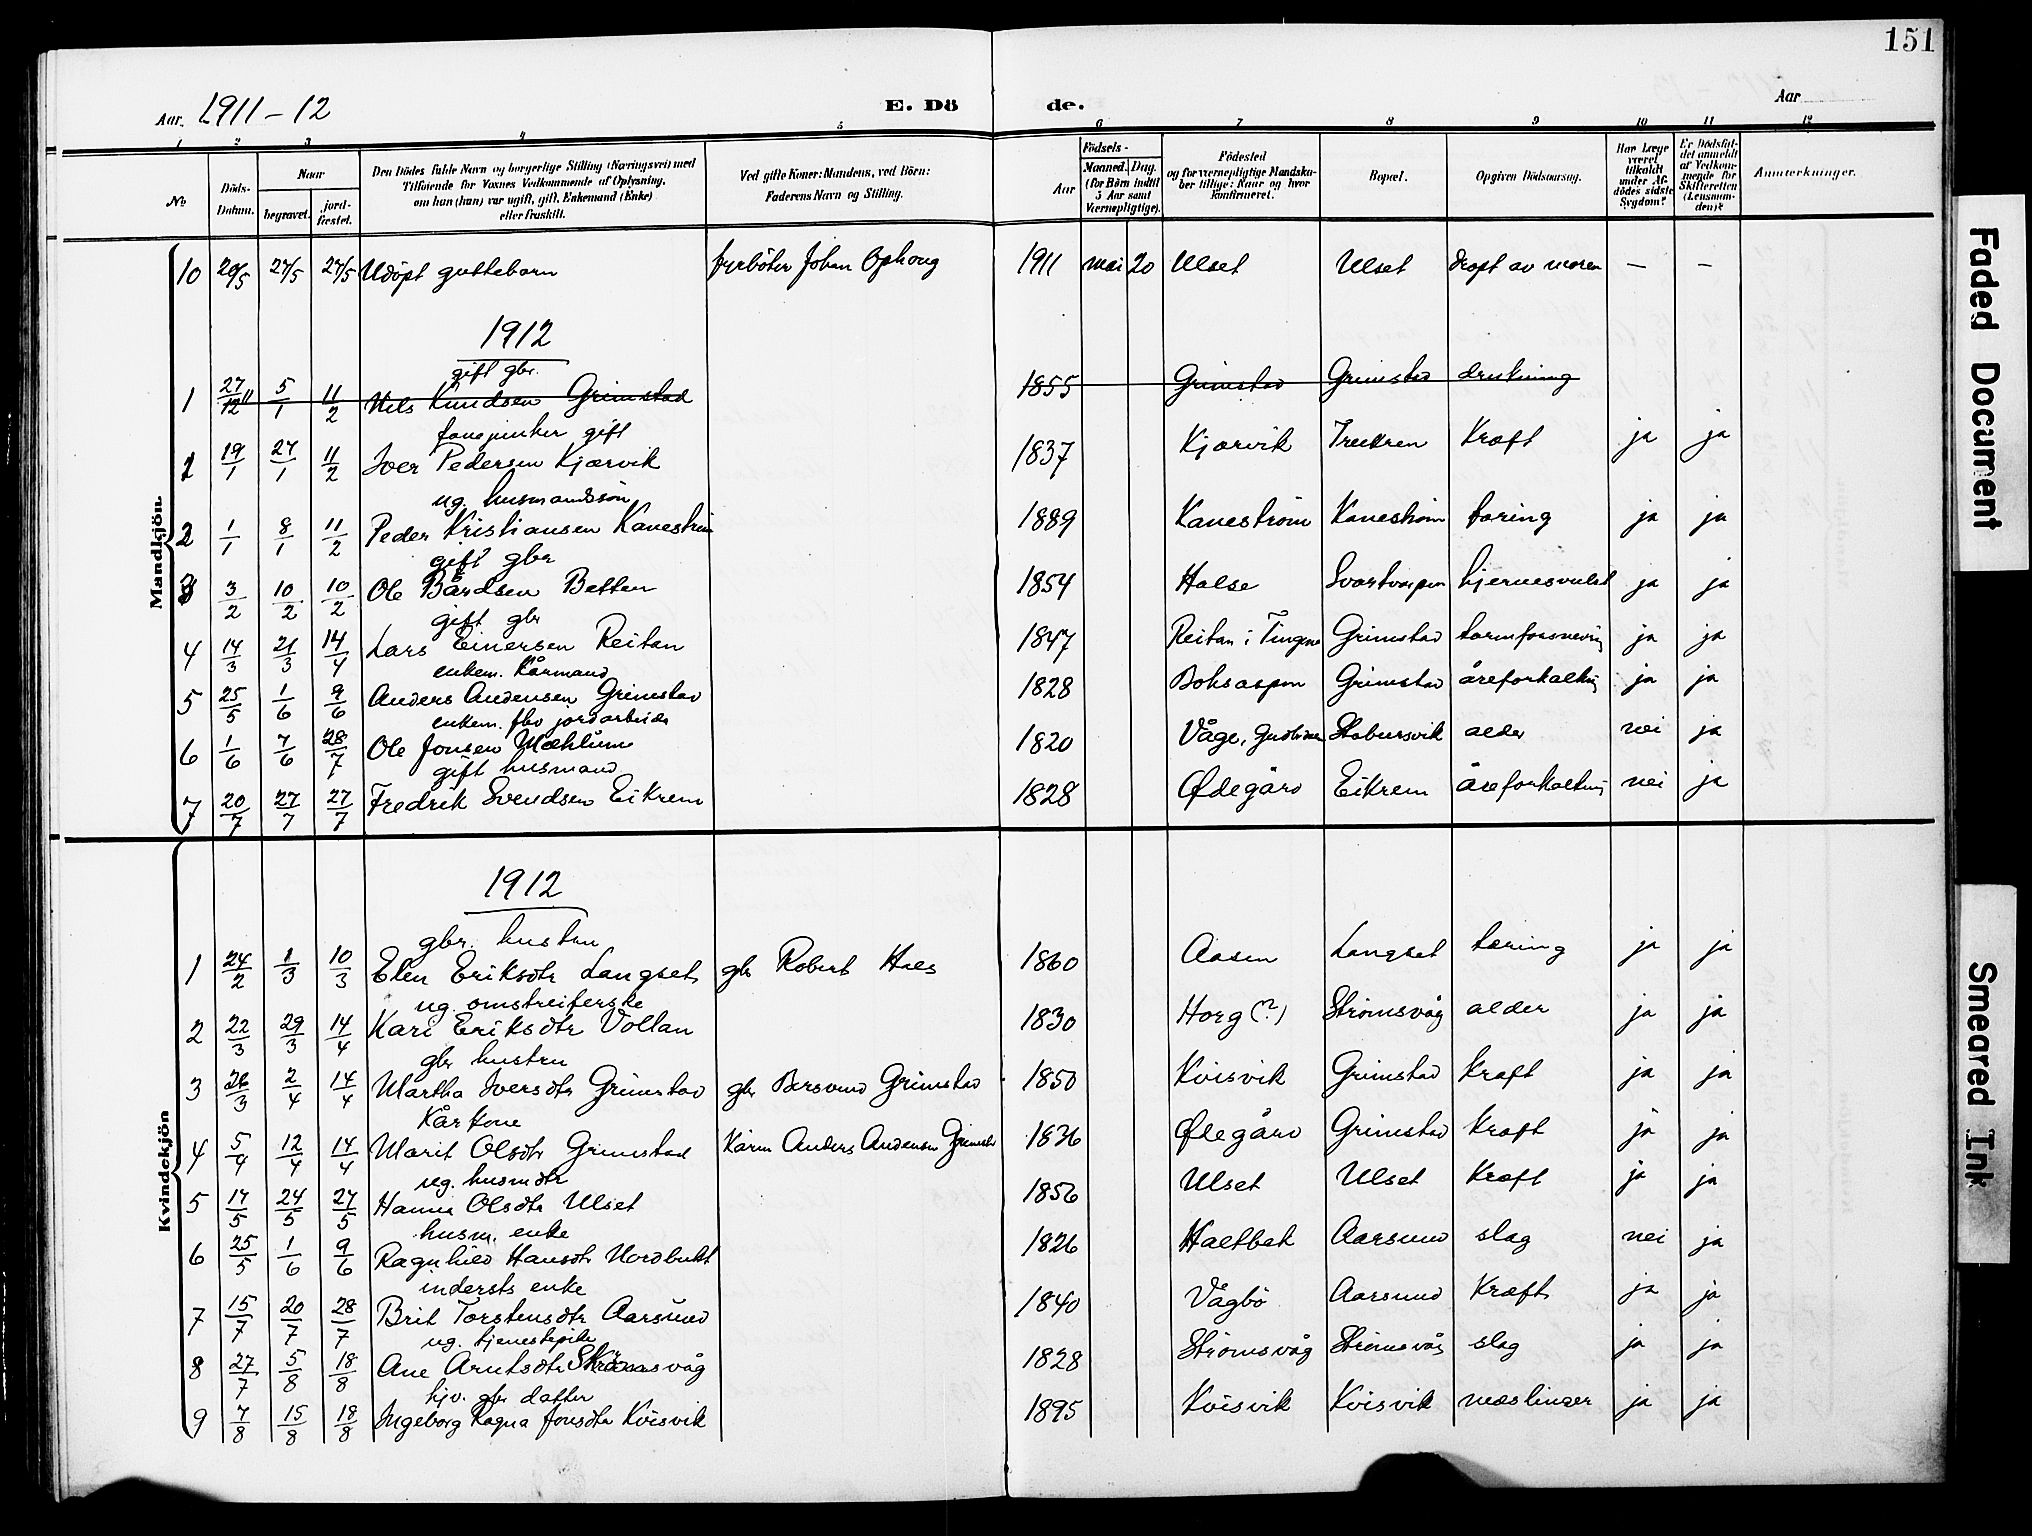 151
Aar 1911 - 12
E. Dö de.
Aar
1 2 3 4 5 6 7 8 9 10 11 12
No
Döds-Datum.
Naar
begravet.
jord-fæstet.
Den Dödes fulde Navn og borgerlige Stilling (Næringsvei) med
Tilföiende for Voxnes Vedkommende af Oplysning,
om hun (han) var ugift, gift, Enkemand (Enke)
eller fraskilt.
Ved gifte Koner: Mandens, ved Börn:
Faderens Navn og Stilling.
Aar
Födsels-
Maaned. Dag.
(for Börn indtil
5 Aar samt
Værnepligtige).
Födested
og for værnepligtige Mandska-
ber tillige: Naar og hvor
konfirmeret.
Bopæl.
Opgiven Dödsaarsag.
Har Læge
været
tilkaldt
under Af-
dödes sidste
Sygdom?
Er Dödsfal-
det anmeldt
af Vedkom-
mende for
Skifteretten
(Lensman-
den)?
Anmerkninger.
Mandkjön.
10 20/5 27/5 27/5 Udöpt guttebarn fyrböter Johan Ophaug 1911 mai 20 Ulset Ulset dræpt av moren — —
1912
gift gbr.
1 27/12 11 5/1 11/2 Nils Knudsen Grimstad 1855 Grimstad Grimstad drukning
fanejunker gift
1 19/1 27/1 11/2 Iver Pedersen Kjærvik 1837 Kjærvik kræft ja ja
ug. husmandssön
2 1/1 8/1 11/2 Peder Kristiansen Kaneström 1889 Kaneström Kaneström tæring ja ja
gift gbr
3 3/2 10/2 10/2 Ole Bårdsen Betten 1854 Halse hjernesvulst ja ja
gift gbr
4 14/3 21/3 14/4 Lars Einersen Reitan 1847 Reitan i Tingvol Grimstad ja ja
enkem. kårmand
5 25/5 1/6 9/6 Anders Andersen Grimstad 1828 Boksaspen Grimstad åreforkalkning ja ja
enkem. fhv jordarbeider
6 1/6 7/6 28/7 Ole Jonsen Mæhlum 1820 Våge, Gudbr Stabursvik alder nei ja
gift husmand
7 20/7 27/7 27/7 Fredrik Svendsen Eikrem 1828 Ødegård Eikrem åreforkalkning nei ja
Kvindekjön
1912
gbr. hustru
1 24/2 1/3 10/3 Elen Eriksdtr Langset gbr Robert Hals 1860 Aasen Langset tæring ja ja
ug. omstreiferske
2 22/3 29/3 14/4 Kari Eriksdtr Vollan 1830 Horg (?) Strömsvåg alder ja ja
gbr hustru
3 26/3 2/4 14/4 Martha Iversdtr Grimstad gbr Bersvend Grimstad 1850 Kvisvik Grimstad kræft ja ja
Kårkone
4 5/4 12/4 14/4 Marit Olsdtr Grimstad Kårm Anders Andersen Grimstad 1836 Ødegård Grimstad kræft ja ja
ug. husmdtr
5 17/5 24/5 27/5 Hanna Olsdtr Ulset 1856 Ulset Ulset kræft ja ja
husm. enke
6 25/5 1/6 9/6 Ragnhild Hansdtr Nordbukt 1826 Haltbak Aarsund slag nei ja
inderst enke
7 15/7 20/7 28/7 Brit Torstensdtr Aarsund 1840 Vågbö Aarsund kræft ja ja
ug. tjenestepike
8 27/7 5/8 18/8 Ane Arntsdtr Strömsvåg 1828 Strömsvåg Strömsvåg slag ja ja
hjv. gbr datter
9 7/8 15/8 18/8 Ingeborg Ragna Jonsdtr Kvisvik 1895 Kvisvik Kvisvik mæslinger ja ja
Faded Document
Smeared Ink